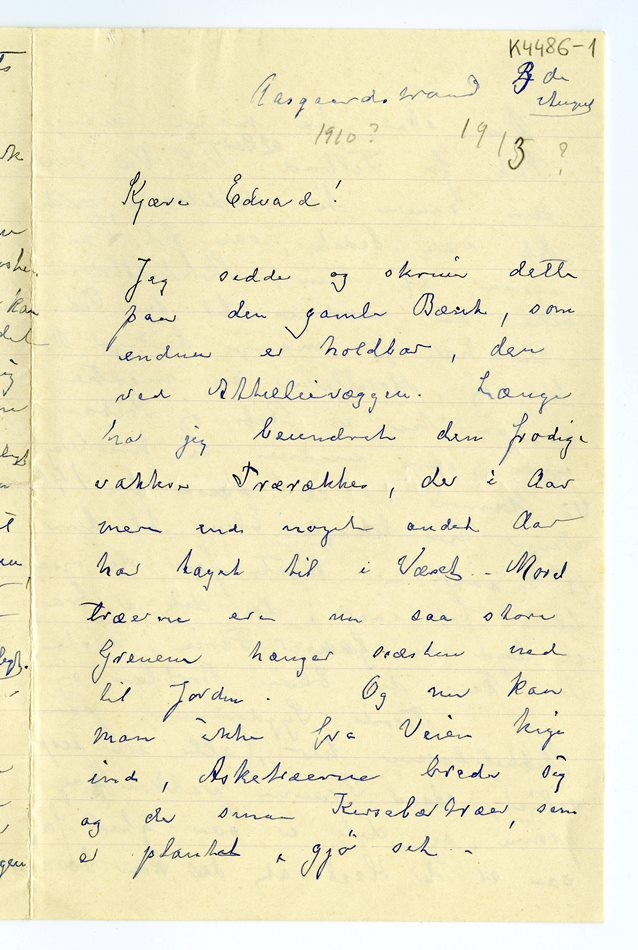 K4486-1
Aasgaardstrand 3 de
August
1910? 1913 ?
Kjære Edvard!
Jeg sidder og skriver dette
paa den gamle Bænk, som
endnu er holdbar, den
ved Athelievæggen. Længe
har jeg beundret den frodige
vakkre Trærækken, der i Aar
mere end noget andet Aar
har taget til i Væxt – Morel
træerne ere nu saa store
Grenene hænger næsten ned
til Jorden – Og nu kan
man ikke fra Veien kige
ind, Asketræerne breder sig
og de smaa Kirsebærtræer, som
er plantet, gjør sit –